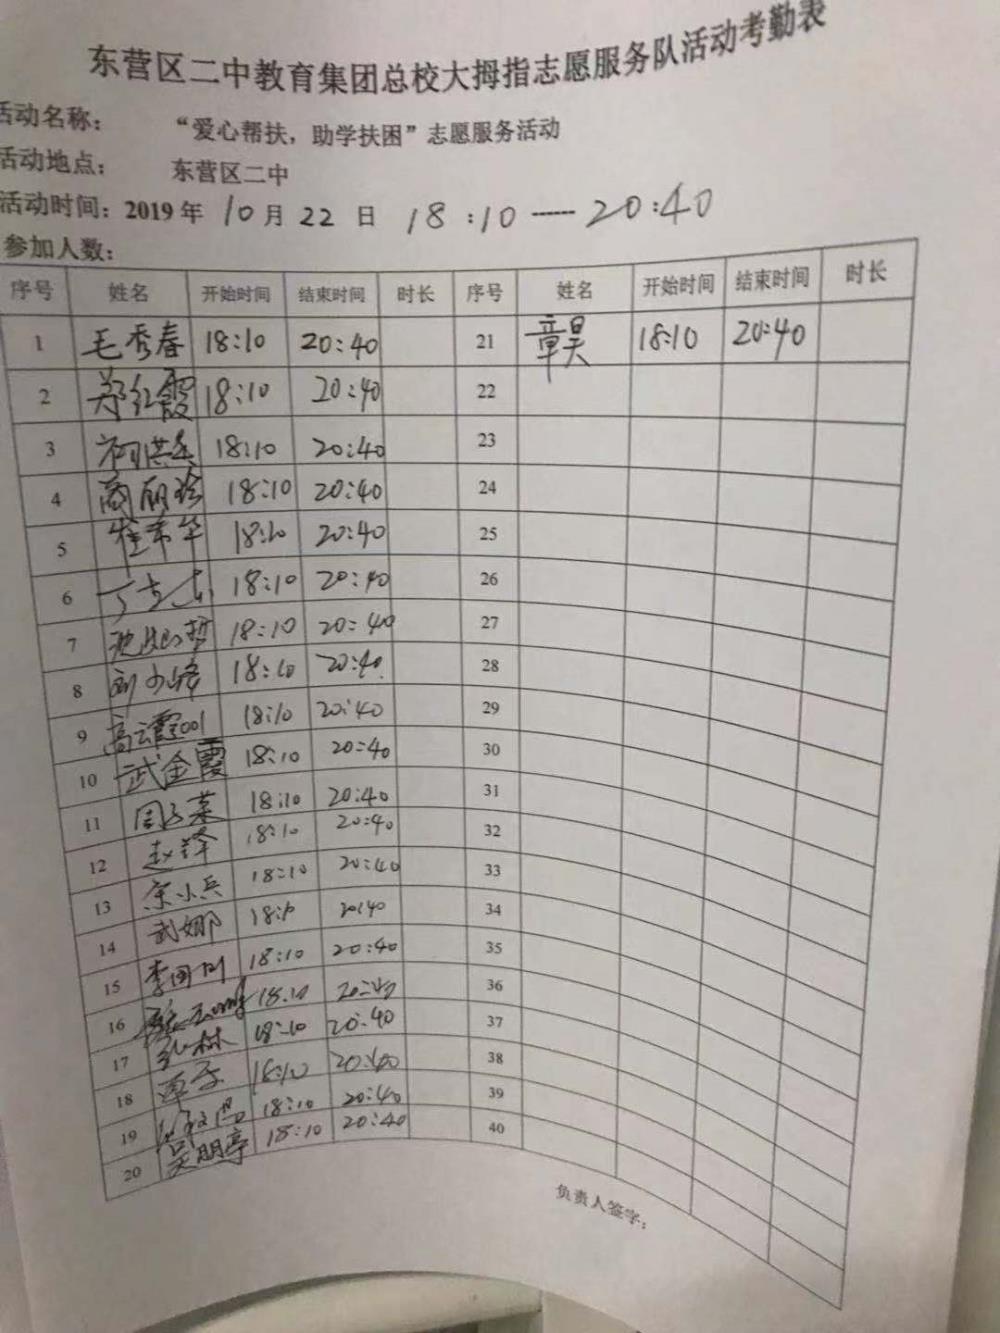 东营区二中教育集团总校大拇指志愿服务队活动考勤表
活动名称： “爱心帮扶，助学扶困”志愿服务活动
活动地点： 东营区二中
活动时间：2019年 10月 22 日 18:10 ----- 20:40
参加人数：
序号 姓名 开始时间 结束时间 时长 序号 姓名 开始时间 结束时间 时长
1 毛秀春 18:10 20:40 21 章昊 18:10 20:40
2 郑红霞 18:10 20:40 22
3 18:10 20:40 23
4 商丽珍 18:10 20:40 24
5 崔希华 18:10 20:40 25
6 18:10 20:40 26
7 18:10 20:40 27
8 刘少峰 18:10 20:40 28
9 高云霞001 18:10 20:40 29
10 武金霞 18:10 20:40 30
11 18:10 20:40 31
12 赵锋 18:10 20:40 32
13 宋小兵 18:10 20:40 33
14 武娜 18:10 20:40 34
15 18:10 20:40 35
16 18:10 20:40 36
17 18:10 20:40 37
18 18:10 20:40 38
19 18:10 20:40 39
20 吴朋亭 18:10 20:40 40
负责人签字：